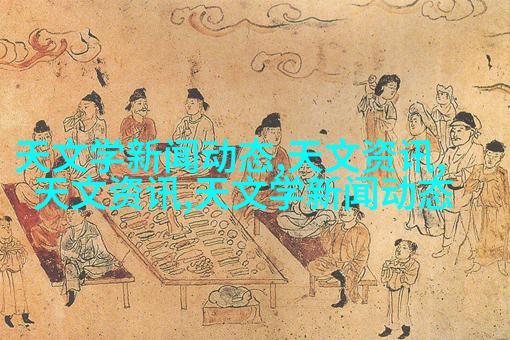 天文学新闻动态,天文资讯,
天文资讯,天文学新闻动态